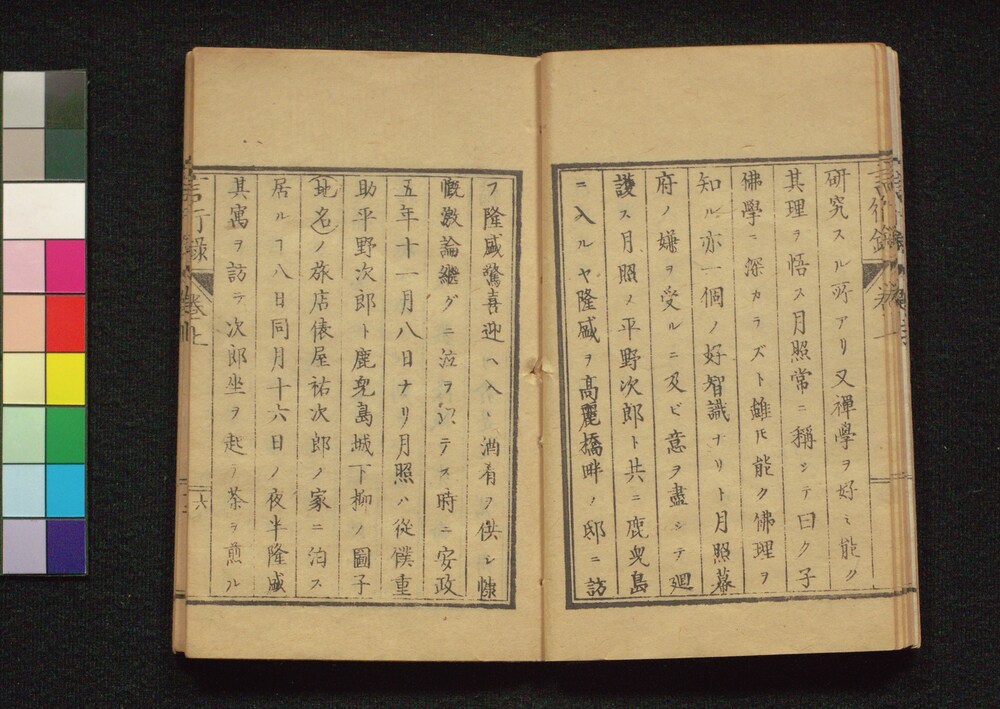 研究スル所アリ又禪學ヲ好ミ能ク
其理ヲ悟ス月照常ニ稱シテ曰ク子
佛學ニ深カラズト雖𪜈能ク佛理ヲ
知ル亦一個ノ好智識ナリト月照幕
府ノ嫌ヲ受ルニ及ビ意ヲ盡シテ廻
護ス月照ノ平野次郎ト共ニ鹿児島
ニ入ルヤ隆盛ヲ高麗橋畔ノ邸ニ訪
フ隆盛驚喜迎ヘ入レ酒肴ヲ供シ慷
慨激論繼グニ泣ヲ以テス時ニ安政
五年十一月八日ナリ月照ハ從僕重
助平野次郎ト鹿児島城下柳ノ圖子
(地名)ノ旅店俵屋祐次郎ノ家ニ泊ス
居ルヿ八日同月十六日ノ夜半隆盛
其寓ヲ訪テ次郎坐ヲ起テ茶ヲ煎ル
言行録
卷上
六